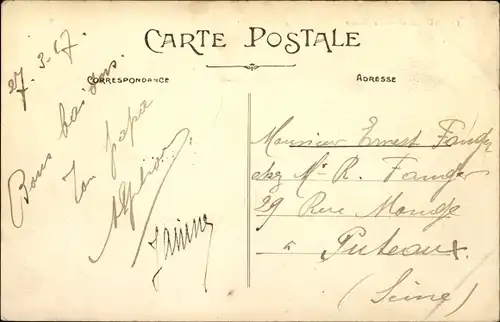 CARTE POSTALE
CORRESPONDANCE
ADRESSE
27.3.17
Bons baisers
Ton papa
Janine
Monsieur Ernest
chez Mr R. Fanger
29 Rue Monge
à Puteaux.
(Seine)